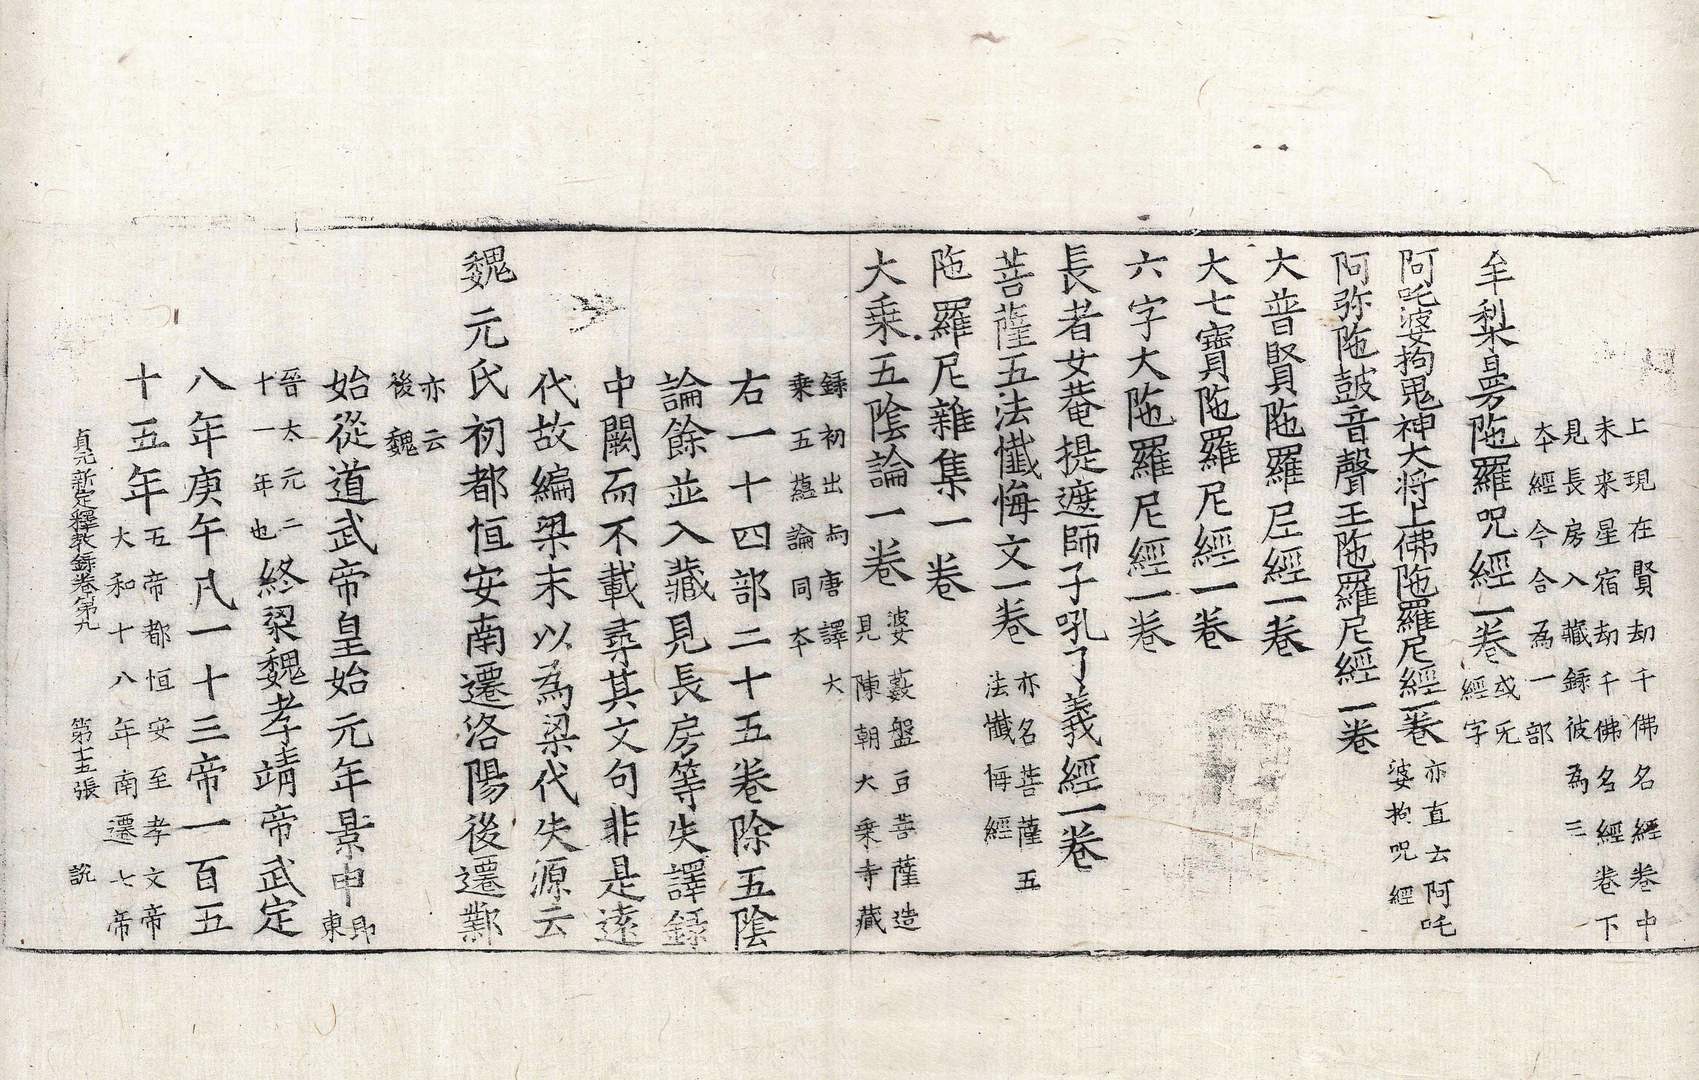 上現在賢劫千佛名經卷中
未来星宿劫千佛名經卷下
見長房入藏録彼為三
夲經今合為一部
牟利曼陁羅呪經一卷或无經字
阿吒婆拘鬼神大将上佛陁羅尼經一卷亦直云阿吒婆拘呪經
阿弥陁鼓音聲王陁羅尼經一卷
大普賢陁羅尼經一卷
大七寳陁羅尼經一卷
六字大陁羅尼經一卷
長者女菴提遮師子吼了義經一卷
菩薩五法懺悔文一卷亦名菩薩五法懺悔經
陁羅尼雜集一卷
大乗五陰論一卷婆藪盤豆菩薩造見陳朝大乗寺藏
録初出与唐譯大
乗五蘊論同夲
右一十四部二十五卷除五陰
論餘並入藏見長房等失譯録
中闕而不載尋其文句非是逺
代故編梁末以為梁代失源云
魏元氏初都恒安南遷洛陽後遷鄴
亦云
後魏
始從道武帝皇始元年景申即東
晉太元二十一年也終梁魏孝靖帝武定
八年庚午凡一十三帝一百五
十五年五帝都恒安至孝文帝大和十八年南遷七帝
貞元新定釋教録卷第九 第十五張 説